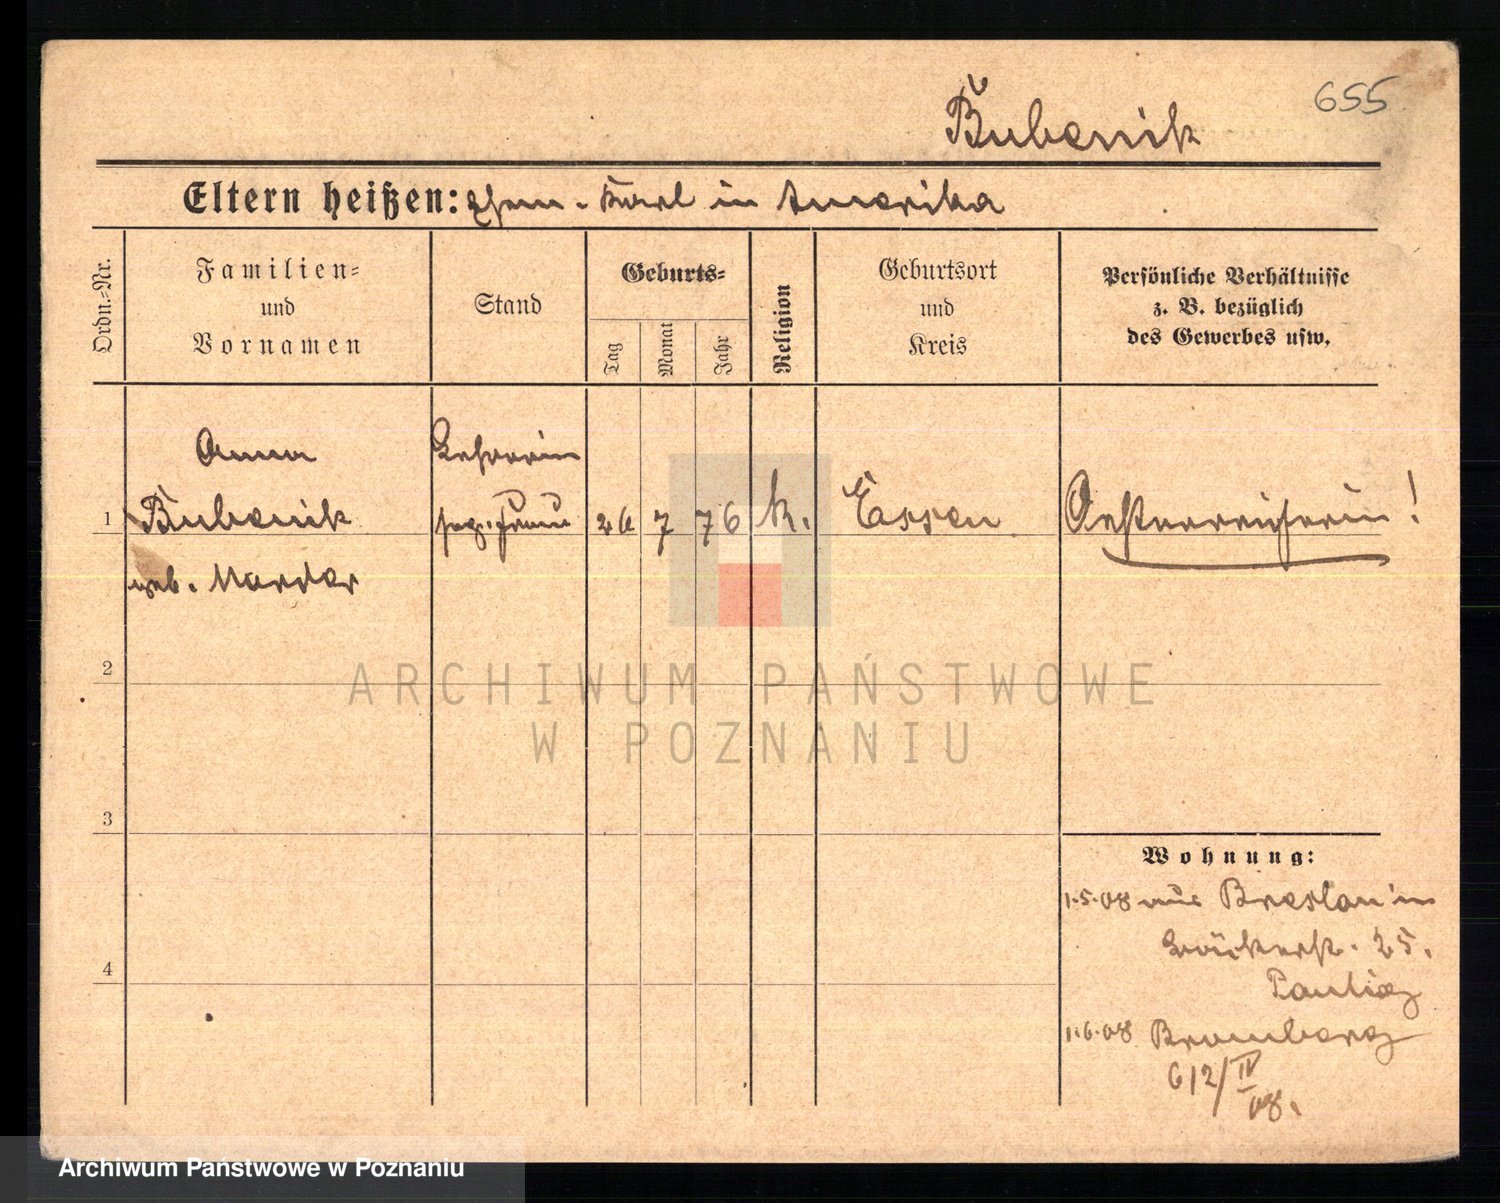 655
Bubenik
Eltern heißen: Ehem. Karl in Amerika
Ordn.=Nr.
Familien=
und
Vornamen
Stand
Geburts=
Tag
Monat
Jahr
Religion
Geburtsort
und
Kreis
Persönliche Verhältnisse
z. B. bezüglich
des Gewerbes usw.
Anna Lehrerin
1 Bubenik Frau 26 7 76 k. Essen Oesterreicherin!
geb. Marder
2
3
4
Wohnung:
1.5.08 aus Breslau in
Bäckerstr. 25.
1.6.08 Bromberg
612/IV
08.
ARCHIWUM PAŃSTWOWE
W POZNANIU
Archiwum Państwowe w Poznaniu